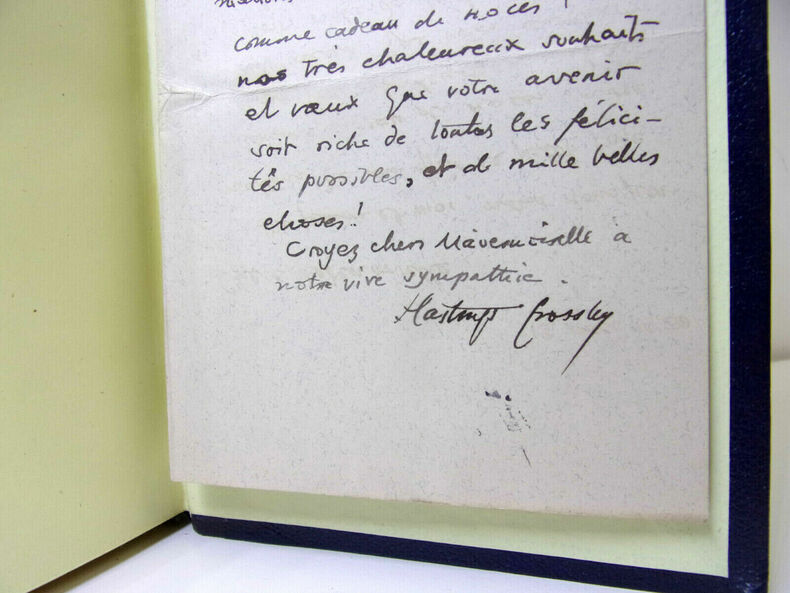 comme cadeau de noces !
nos très chaleureux souhaits
et vœux que votre avenir
soit riche de toutes les félici-
tés possibles, et de mille belles
choses !
Croyez chère Mademoiselle a
notre vive sympathie.
Hastings Crossley